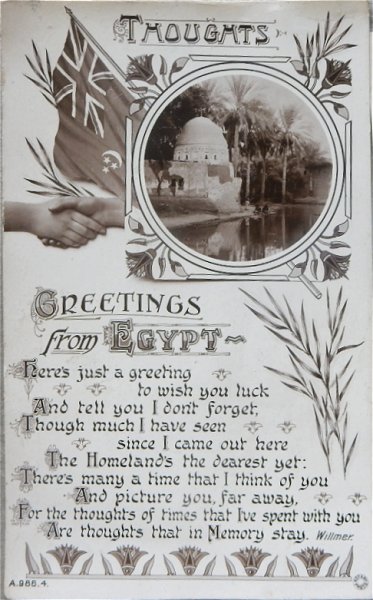 THOUGHTS
GREETINGS
from EGYPT
Here's just a greeting
to wish you luck
And tell you I don't forget,
Though much I have seen
since I came out here
The Homeland's the dearest yet:
There's many a time that I think of you
And picture you, far away,
For the thoughts of times that I've spent with you
Are thoughts that in Memory stay. Willmer.
A.986.4.